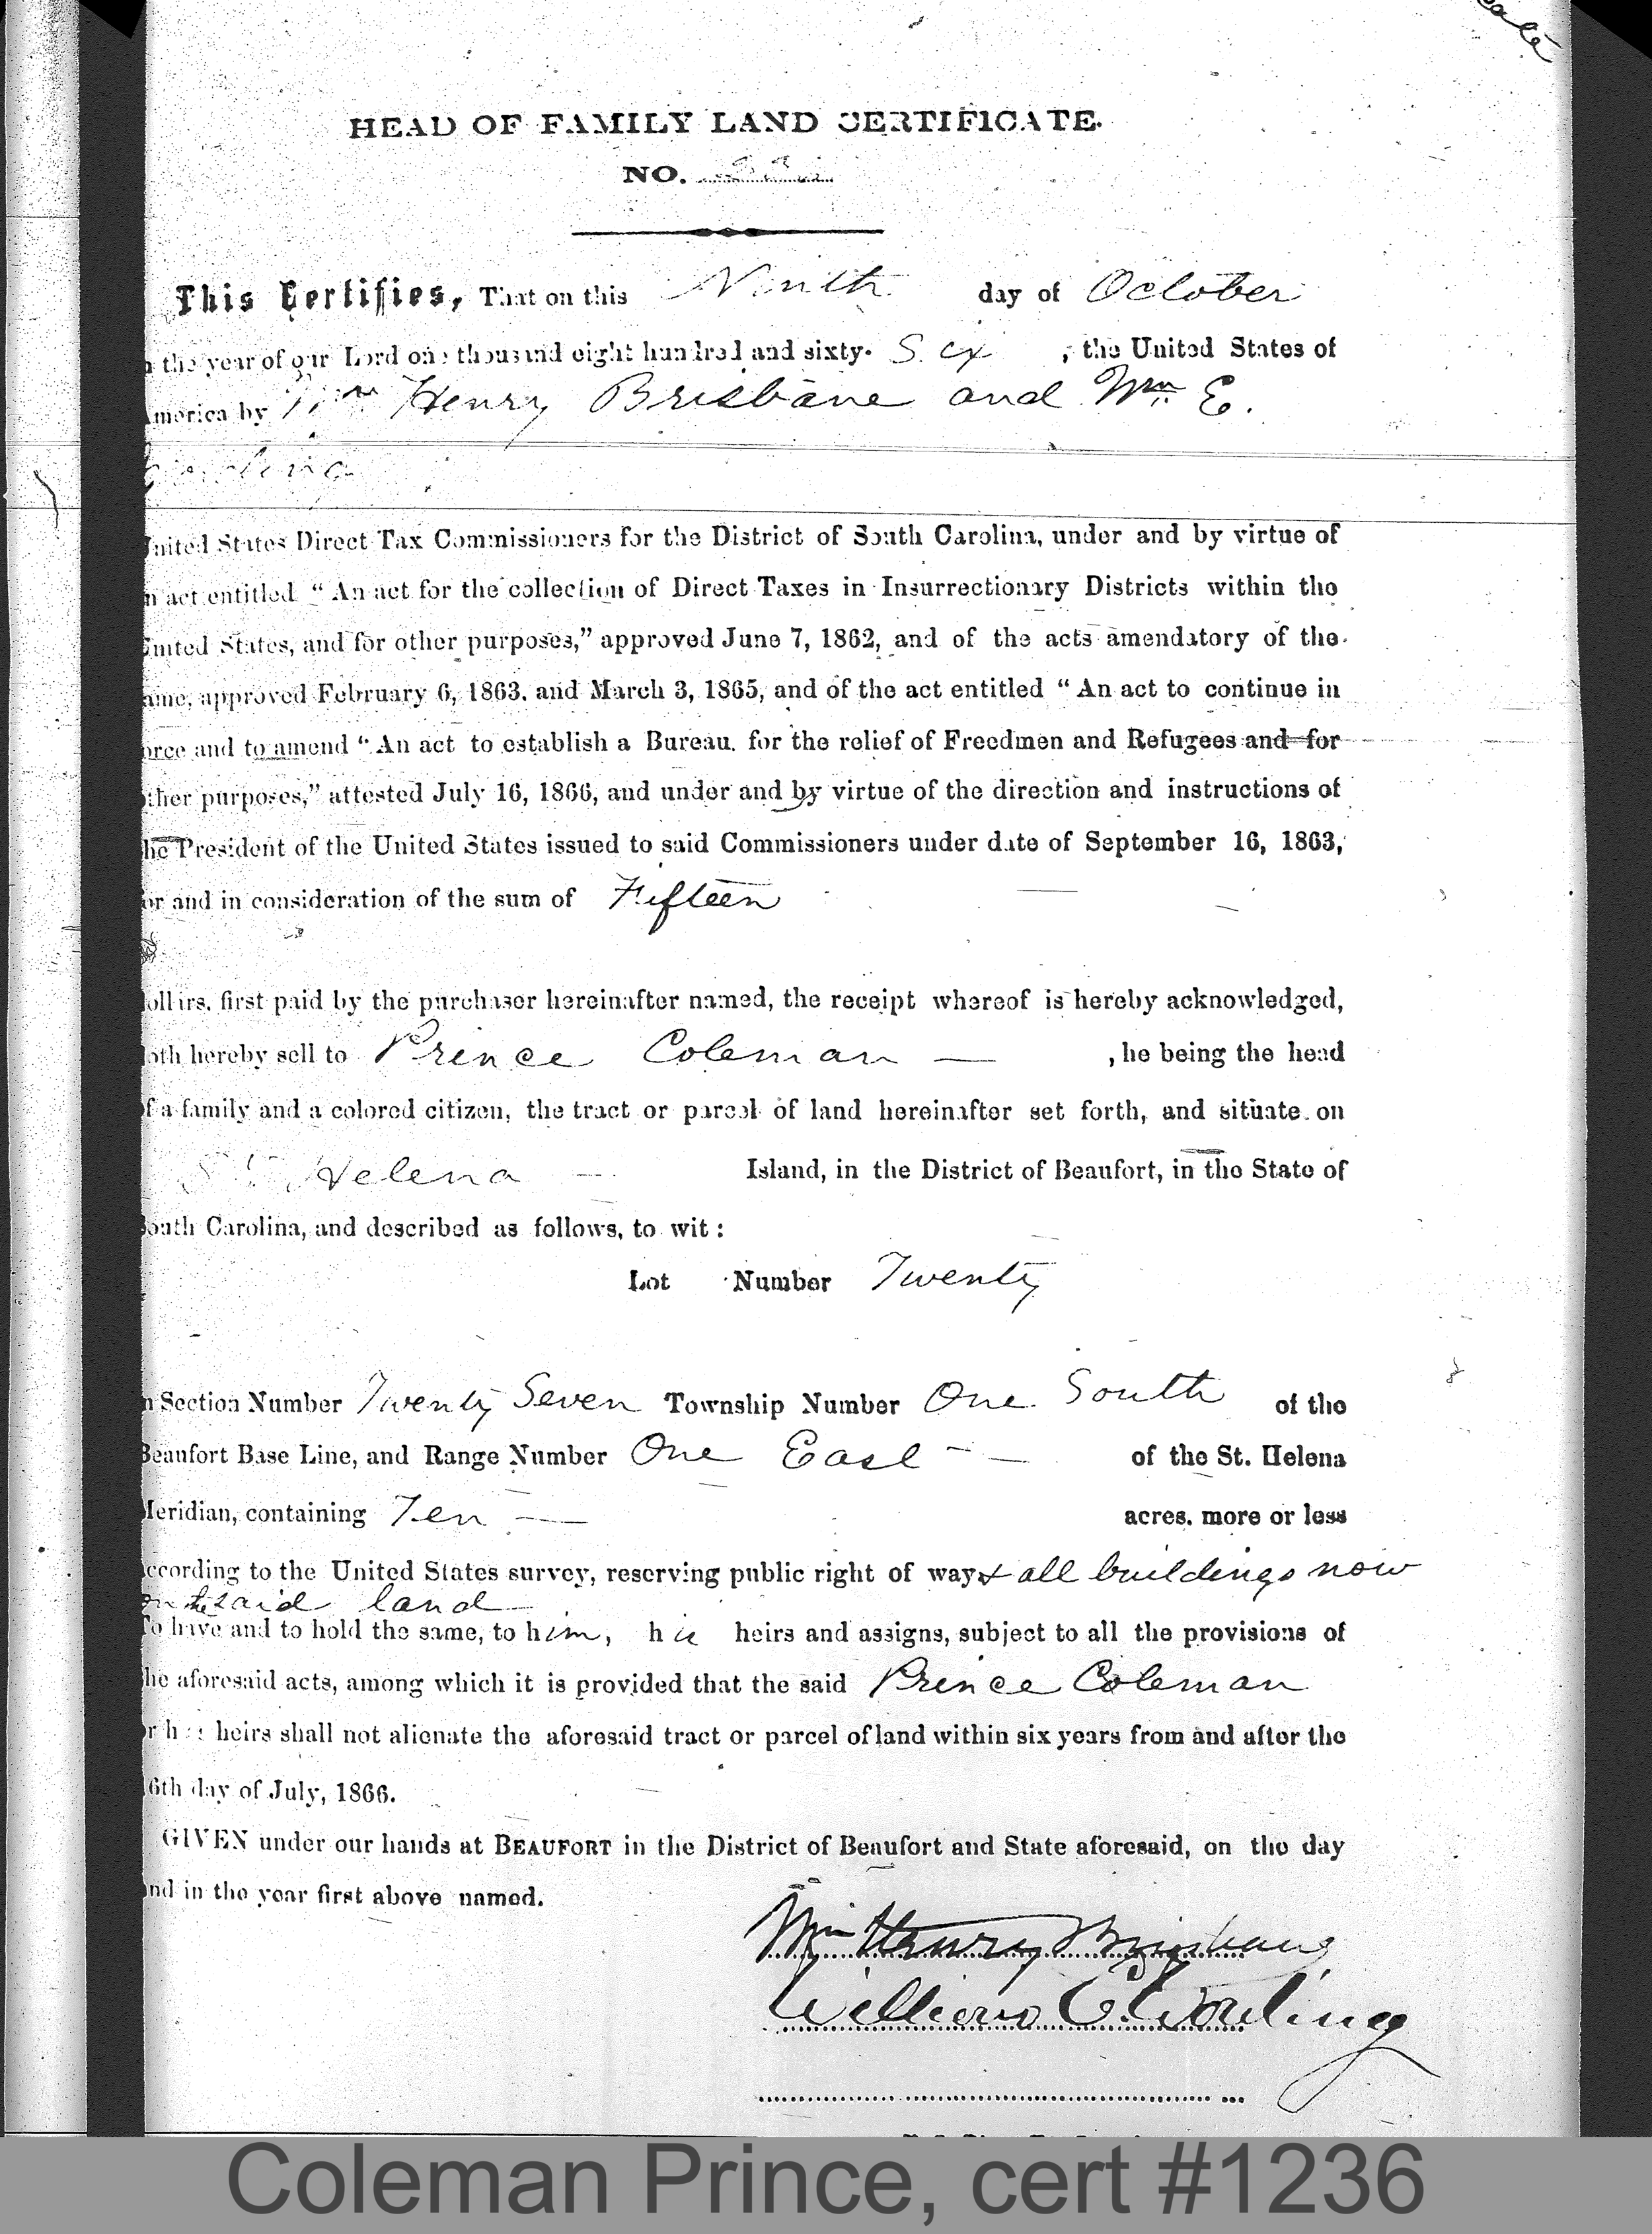 HEAD OF FAMILY LAND CERTIFICATE.
NO.
This Certifies, That on this Ninth day of October
n the year of our Lord one thousand eight hundred and sixty- Six , the United States of
America by Wm Henry Brisbane and Wm E.
United States Direct Tax Commissioners for the District of South Carolina, under and by virtue of
n act entitled "An act for the collection of Direct Taxes in Insurrectionary Districts within the
United States, and for other purposes," approved June 7, 1862, and of the acts amendatory of the
ame, approved February 6, 1863, and March 3, 1865, and of the act entitled "An act to continue in
orce and to amend "An act to establish a Bureau for the relief of Freedmen and Refugees and for
ther purposes," attested July 16, 1866, and under and by virtue of the direction and instructions of
he President of the United States issued to said Commissioners under date of September 16, 1863,
or and in consideration of the sum of Fifteen
ollars, first paid by the purchaser hereinafter named, the receipt whereof is hereby acknowledged,
oth hereby sell to Prince Coleman — , he being the head
of a family and a colored citizen, the tract or parcel of land hereinafter set forth, and situate on
St Helena — Island, in the District of Beaufort, in the State of
South Carolina, and described as follows, to wit:
Lot Number Twenty
n Section Number Twenty Seven Township Number One South of the
Beaufort Base Line, and Range Number One East — of the St. Helena
Meridian, containing Ten — acres, more or less
ccording to the United States survey, reserving public right of way & all buildings now
on the said land
To have and to hold the same, to him, his heirs and assigns, subject to all the provisions of
he aforesaid acts, among which it is provided that the said Prince Coleman
or his heirs shall not alienate the aforesaid tract or parcel of land within six years from and after the
16th day of July, 1866.
GIVEN under our hands at BEAUFORT in the District of Beaufort and State aforesaid, on the day
nd in the year first above named.
Wm Henry Brisbane
William E. Wording
Coleman Prince, cert #1236